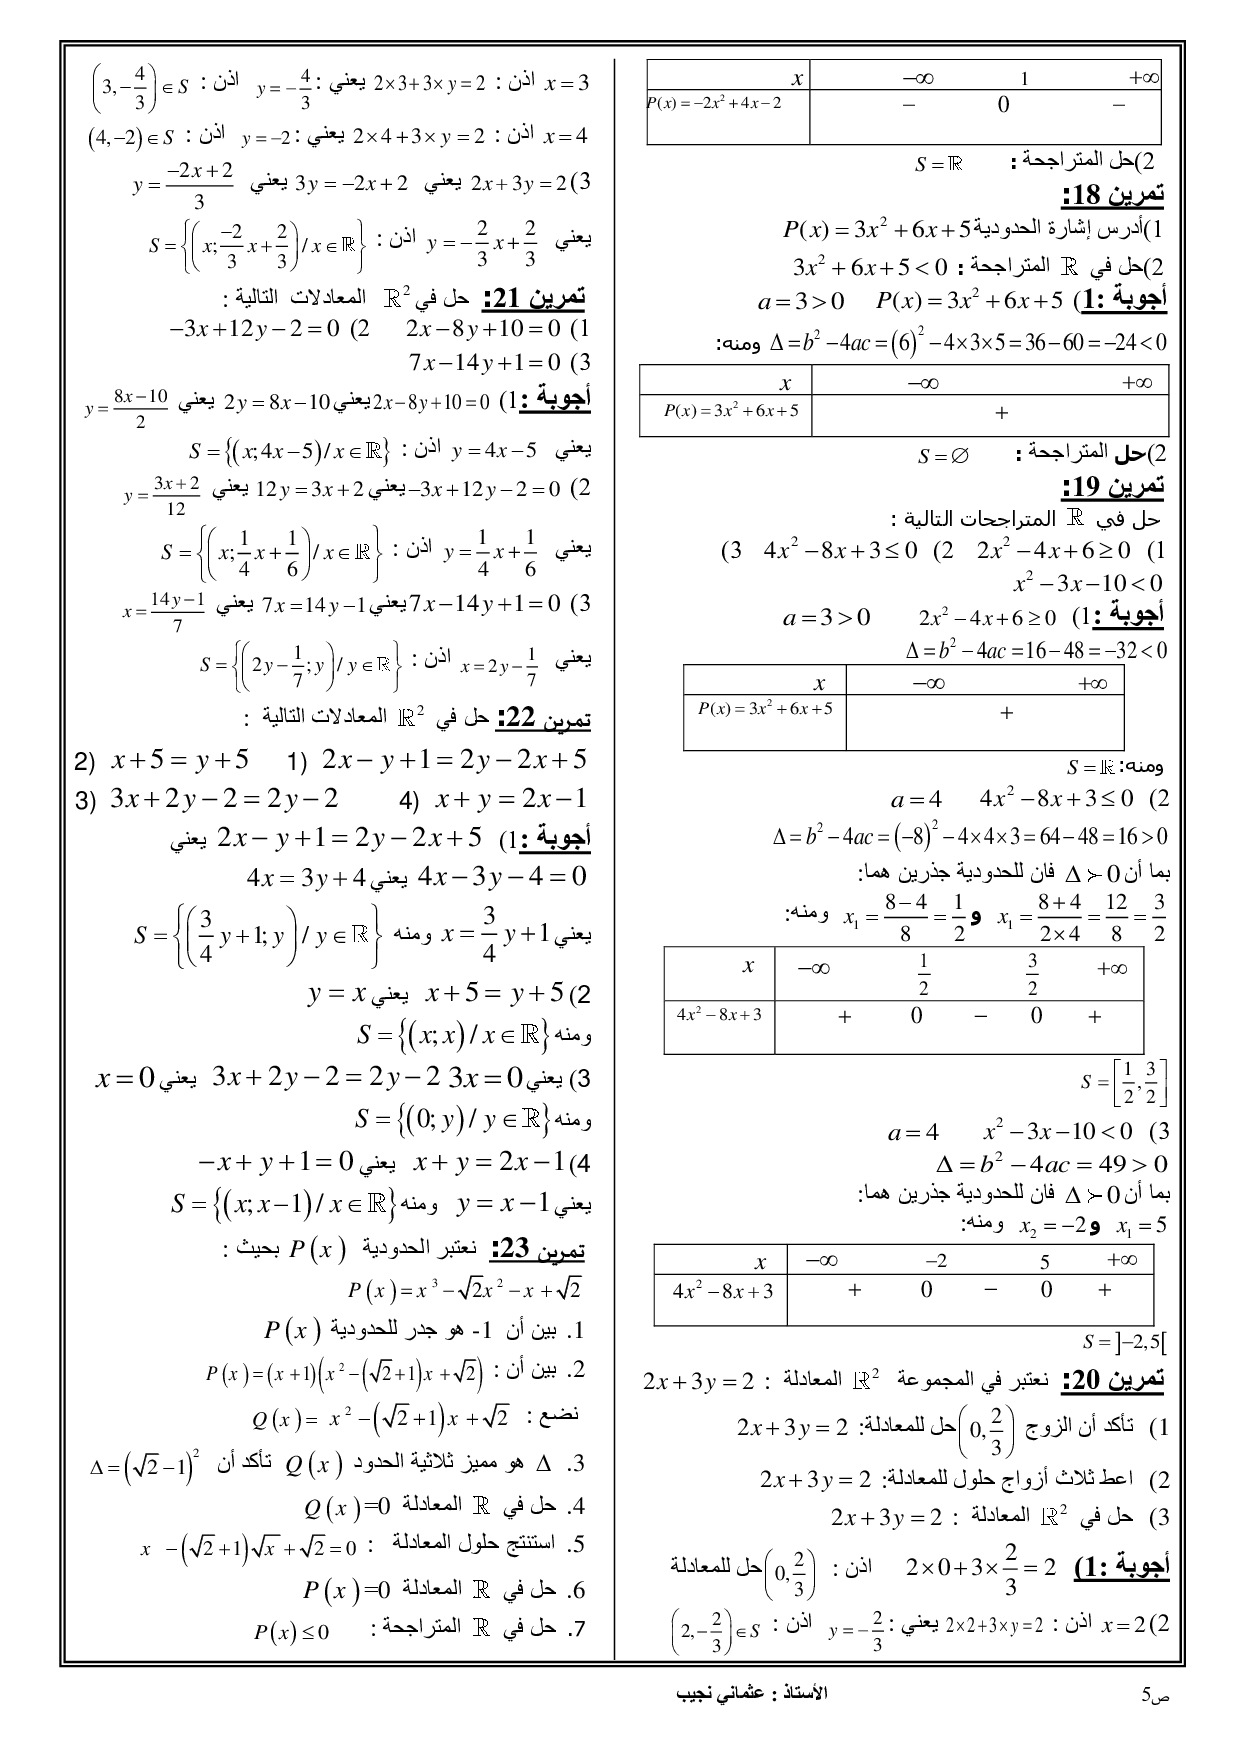 x −∞ 1 +∞
P(x) = −2x² + 4x − 2 − 0 −
2)حل المتراجحة : S = ℝ
تمرين 18:
1)أدرس إشارة الحدودية P(x) = 3x² + 6x + 5
2)حل في ℝ المتراجحة : 3x² + 6x + 5 < 0
أجوبة :1) P(x) = 3x² + 6x + 5 a = 3 > 0
Δ = b² − 4ac = (6)² − 4×3×5 = 36 − 60 = −24 < 0 ومنه:
x −∞ +∞
P(x) = 3x² + 6x + 5 +
2)حل المتراجحة : S = ∅
تمرين 19:
حل في ℝ المتراجحات التالية :
1) 2x² − 4x + 6 ≥ 0 2) 4x² − 8x + 3 ≤ 0 3)
x² − 3x − 10 < 0
أجوبة :1) 2x² − 4x + 6 ≥ 0 a = 3 > 0
Δ = b² − 4ac = 16 − 48 = −32 < 0
x −∞ +∞
P(x) = 3x² + 6x + 5 +
ومنه: S = ℝ
2) 4x² − 8x + 3 ≤ 0 a = 4
Δ = b² − 4ac = (−8)² − 4×4×3 = 64 − 48 = 16 > 0
بما أن Δ ≻ 0 فان للحدودية جذرين هما:
x₁ = (8+4)/(2×4) = 12/8 = 3/2 و x₁ = (8−4)/8 = 1/2 ومنه:
x −∞ 1/2 3/2 +∞
4x² − 8x + 3 + 0 − 0 +
S = [1/2, 3/2]
3) x² − 3x − 10 < 0 a = 4
Δ = b² − 4ac = 49 > 0
بما أن Δ ≻ 0 فان للحدودية جذرين هما:
x₁ = 5 و x₂ = −2 ومنه:
x −∞ −2 5 +∞
4x² − 8x + 3 + 0 − 0 +
S = ]−2,5[
تمرين 20: نعتبر في المجموعة ℝ² المعادلة : 2x + 3y = 2
1) تأكد أن الزوج (0, 2/3) حل للمعادلة: 2x + 3y = 2
2) اعط ثلاث أزواج حلول للمعادلة: 2x + 3y = 2
3) حل في ℝ² المعادلة : 2x + 3y = 2
أجوبة :1) 2×0 + 3×2/3 = 2 اذن : (0, 2/3) حل للمعادلة
2) x = 2 اذن : 2×2 + 3×y = 2 يعني : y = −2/3 اذن : (2, −2/3) ∈ S
x = 3 اذن : 2×3 + 3×y = 2 يعني : y = −4/3 اذن : (3, −4/3) ∈ S
x = 4 اذن : 2×4 + 3×y = 2 يعني : y = −2 اذن : (4, −2) ∈ S
3) 2x + 3y = 2 يعني 3y = −2x + 2 يعني y = (−2x+2)/3
يعني y = −2/3 x + 2/3 اذن : S = {(x; −2/3 x + 2/3) / x ∈ ℝ}
تمرين 21: حل في ℝ² المعادلات التالية :
1) 2x − 8y + 10 = 0 2) −3x + 12y − 2 = 0
3) 7x − 14y + 1 = 0
أجوبة :1) 2x − 8y + 10 = 0 يعني 2y = 8x − 10 يعني y = (8x−10)/2
يعني y = 4x − 5 اذن : S = {(x; 4x − 5) / x ∈ ℝ}
2) −3x + 12y − 2 = 0 يعني 12y = 3x + 2 يعني y = (3x+2)/12
يعني y = 1/4 x + 1/6 اذن : S = {(x; 1/4 x + 1/6) / x ∈ ℝ}
3) 7x − 14y + 1 = 0 يعني 7x = 14y − 1 يعني x = (14y−1)/7
يعني x = 2y − 1/7 اذن : S = {(2y − 1/7; y) / y ∈ ℝ}
تمرين 22: حل في ℝ² المعادلات التالية :
2) x + 5 = y + 5 1) 2x − y + 1 = 2y − 2x + 5
3) 3x + 2y − 2 = 2y − 2 4) x + y = 2x − 1
أجوبة :1) 2x − y + 1 = 2y − 2x + 5 يعني
4x − 3y − 4 = 0 يعني 4x = 3y + 4
يعني x = 3/4 y + 1 ومنه S = {(3/4 y + 1; y) / y ∈ ℝ}
2) x + 5 = y + 5 يعني y = x
ومنه S = {(x; x) / x ∈ ℝ}
3) يعني 3x = 0 3x + 2y − 2 = 2y − 2 يعني x = 0
ومنه S = {(0; y) / y ∈ ℝ}
4) x + y = 2x − 1 يعني −x + y + 1 = 0
يعني y = x − 1 ومنه S = {(x; x − 1) / x ∈ ℝ}
تمرين 23: نعتبر الحدودية P(x) بحيث :
P(x) = x³ − √2x² − x + √2
1. بين أن 1- هو جدر للحدودية P(x)
2. بين أن : P(x) = (x + 1)(x² − (√2 + 1)x + √2)
نضع : Q(x) = x² − (√2 + 1)x + √2
3. Δ هو مميز ثلاثية الحدود Q(x) تأكد أن Δ = (√2 − 1)²
4. حل في ℝ المعادلة Q(x)=0
5. استنتج حلول المعادلة : x − (√2 + 1)√x + √2 = 0
6. حل في ℝ المعادلة P(x)=0
7. حل في ℝ المتراجحة : P(x) ≤ 0
ص5 الأستاذ : عثماني نجيب